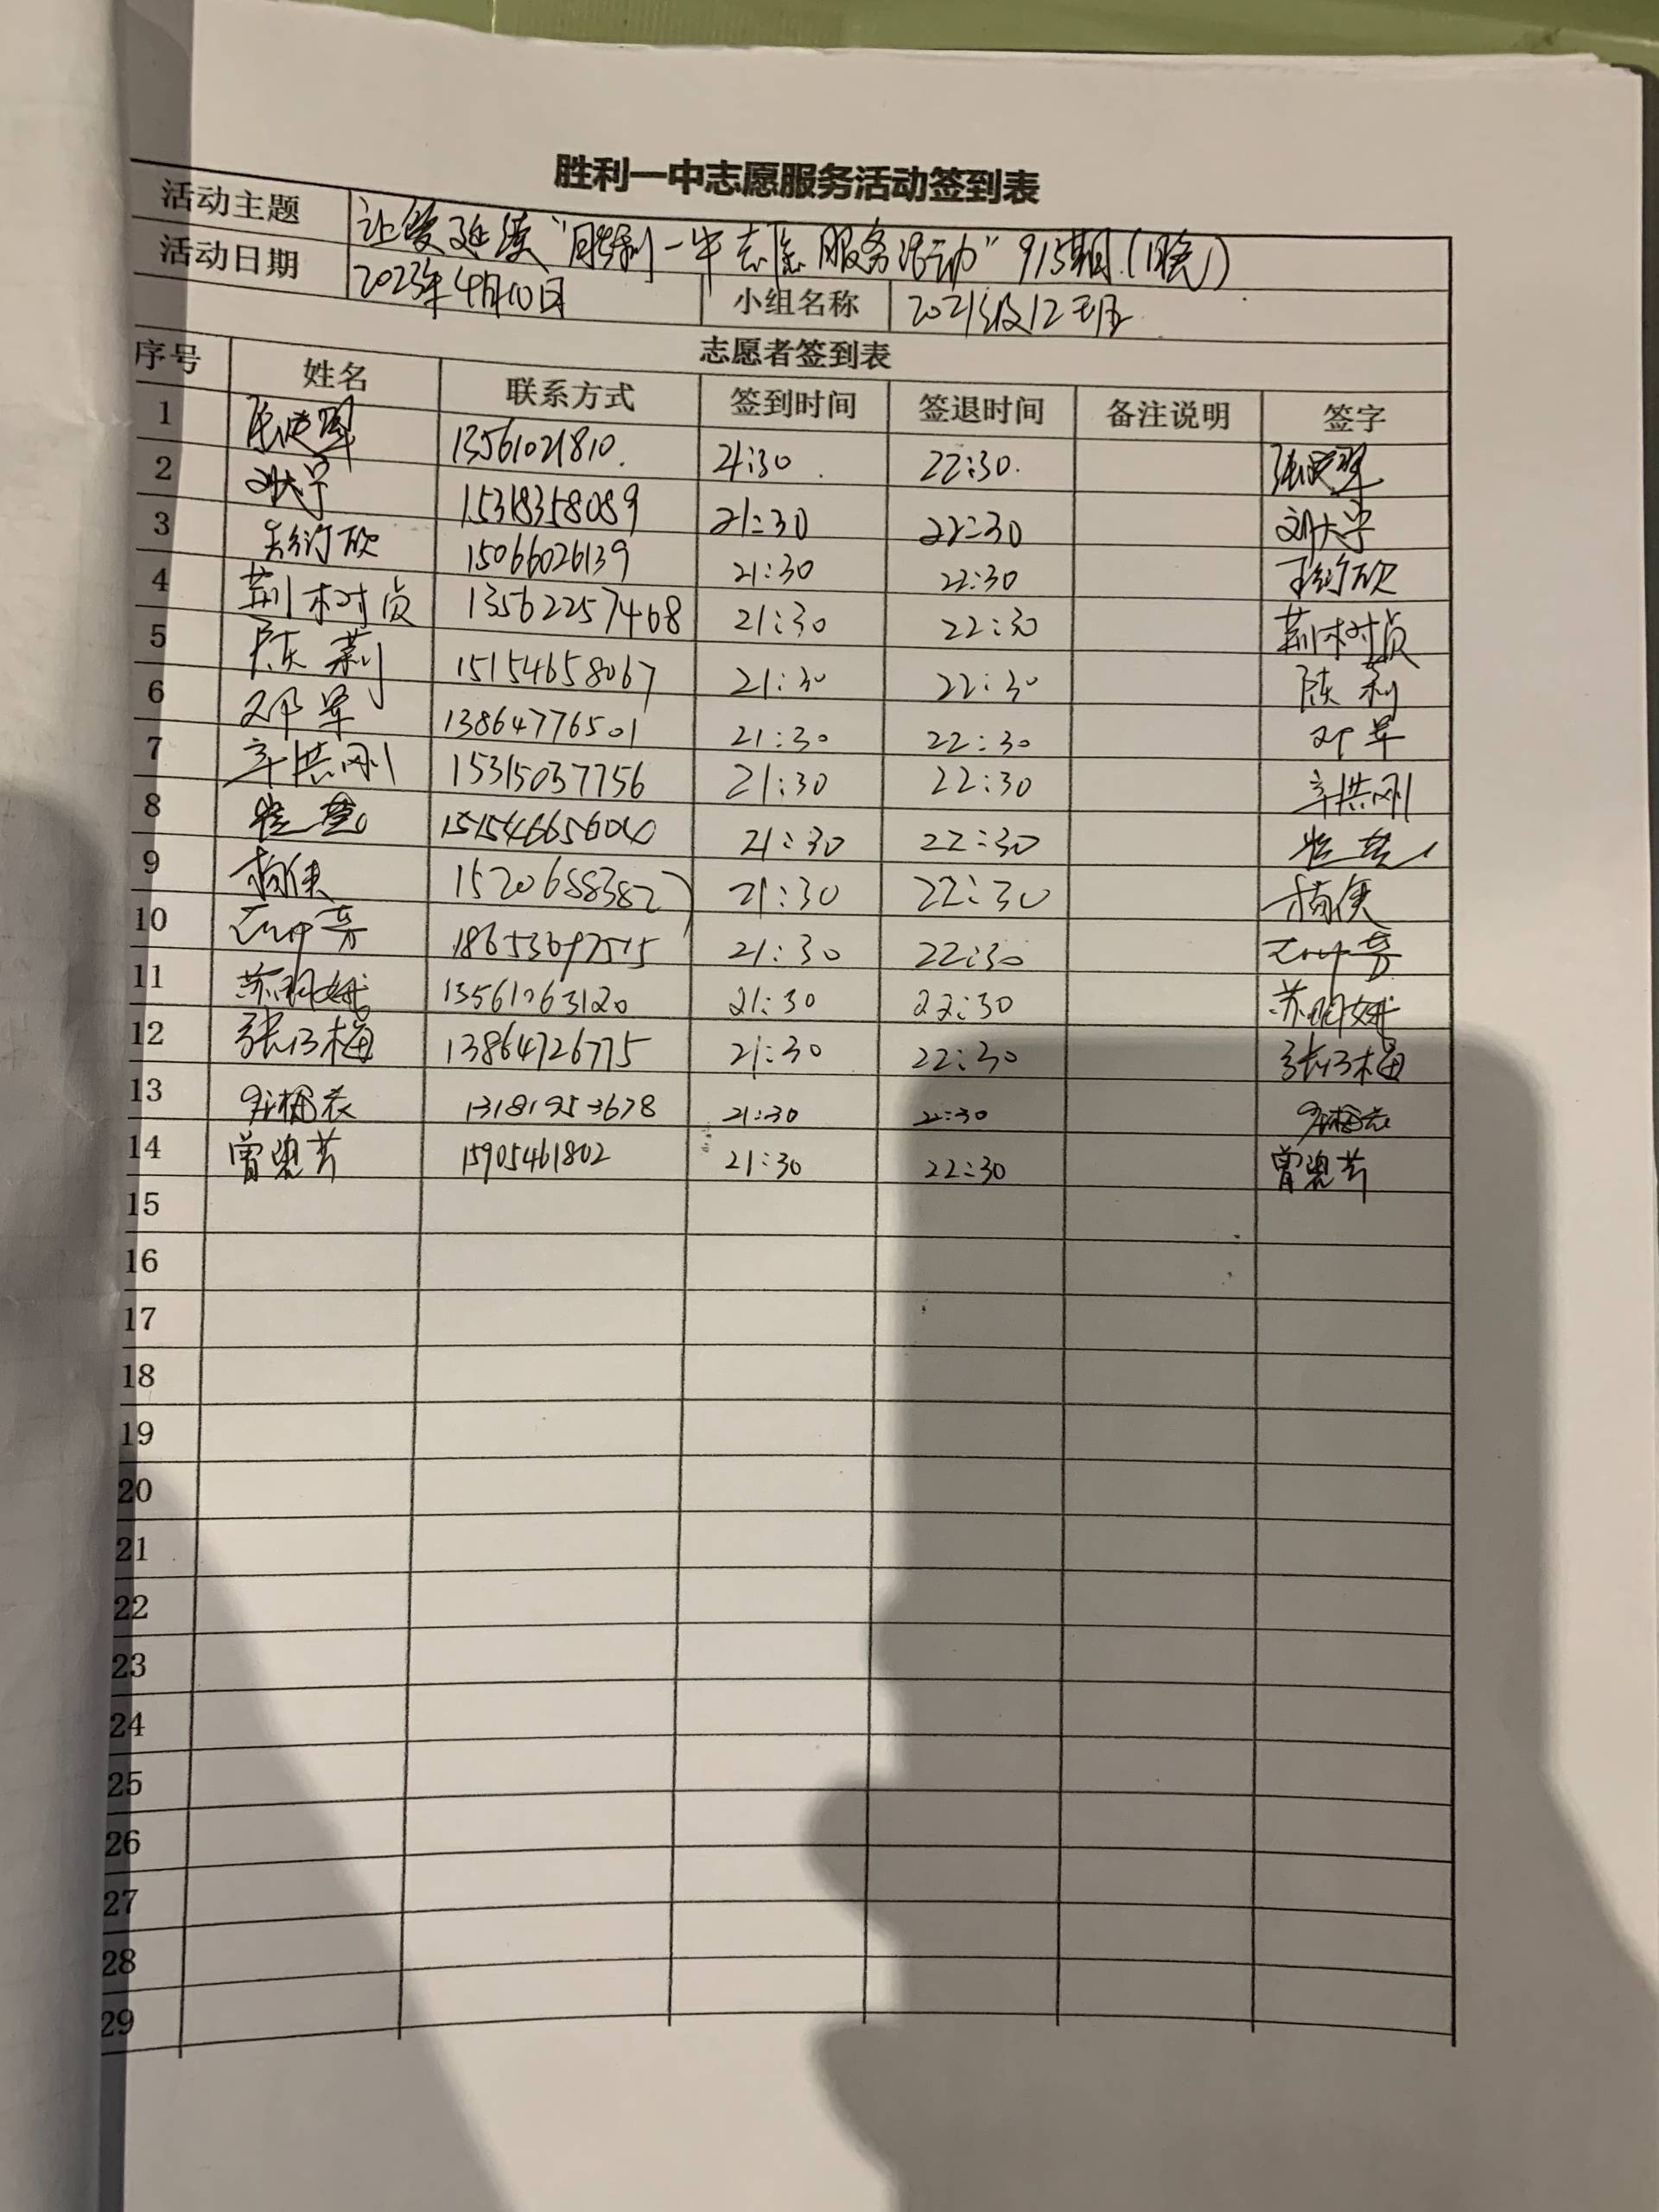 胜利一中志愿服务活动签到表
活动主题 让爱延续"胜利一中志愿服务活动"915期(晚)
活动日期 2023年4月10日 小组名称 2021级12班
志愿者签到表
序号 姓名 联系方式 签到时间 签退时间 备注说明 签字
1 13561021810. 21:30 22:30.
2 刘大宇 15318358089 21:30 22:30 刘大宇
3 15066026139 21:30 22:30
4 荆树贞 13562257468 21:30 22:30 荆树贞
5 陈莉 15154658067 21:30 22:30 陈莉
6 邓军 13864776501 21:30 22:30 邓军
7 辛洪刚 15315037756 21:30 22:30 辛洪刚
8 21:30 22:30
9 杨侠 15206888382 21:30 22:30 杨侠
10 21:30 22:30
11 苏 13561263120 21:30 22:30 苏
12 张卫梅 13864726775 21:30 22:30 张卫梅
13 13181953678 21:30 22:30
14 曾 15905461802 21:30 22:30 曾
15
16
17
18
19
20
21
22
23
24
25
26
27
28
29